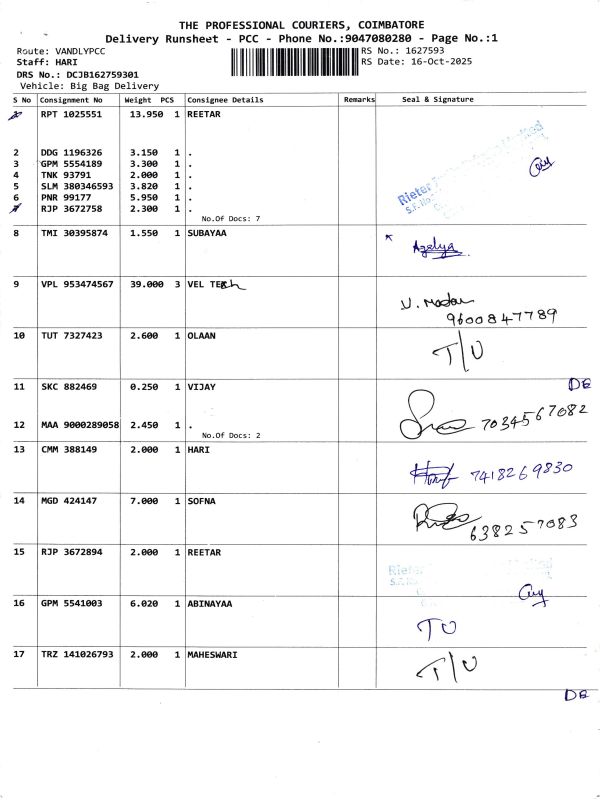 THE PROFESSIONAL COURIERS, COIMBATORE
Delivery Runsheet - PCC - Phone No.:9047080280 - Page No.:1
Route: VANDLYPCC
Staff: HARI
DRS No.: DCJB162759301
Vehicle: Big Bag Delivery
RS No.: 1627593
RS Date: 16-Oct-2025
S No Consignment No Weight PCS Consignee Details Remarks Seal & Signature
RPT 1025551 13.950 1 REETAR
2 DDG 1196326 3.150 1 .
3 GPM 5554189 3.300 1 .
4 TNK 93791 2.000 1 .
5 SLM 380346593 3.820 1 .
6 PNR 99177 5.950 1 .
RJP 3672758 2.300 1 .
No.Of Docs: 7
Rieter
S.F.No.
8 TMI 30395874 1.550 1 SUBAYAA
9 VPL 953474567 39.000 3 VEL TEch
9600847789
10 TUT 7327423 2.600 1 OLAAN T/U
DE
11 SKC 882469 0.250 1 VIJAY
7034567082
12 MAA 9000289058 2.450 1 .
No.Of Docs: 2
13 CMM 388149 2.000 1 HARI
7418269830
14 MGD 424147 7.000 1 SOFNA
638257083
15 RJP 3672894 2.000 1 REETAR
Rieter
S.F.No.
16 GPM 5541003 6.020 1 ABINAYAA
TU
17 TRZ 141026793 2.000 1 MAHESWARI
T/U
DE